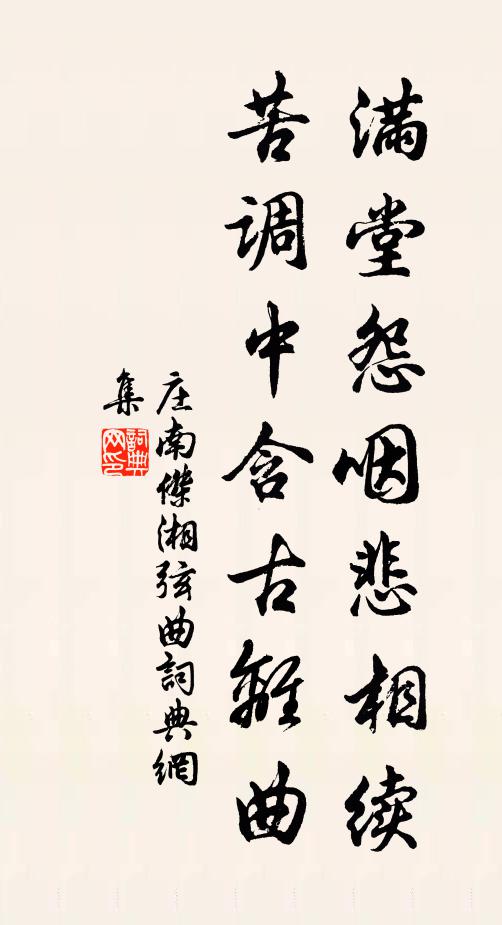 满堂怨咽悲相续
苦调中含古離曲
庄南傑湘弦曲詞典網
集
詞典
网印